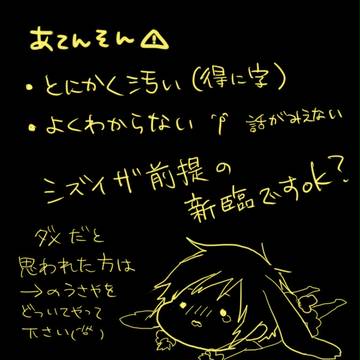 あてんそん⚠
・とにかく汚い(得に字)
・よくわからない 話がみえない
シズイザ前提の
新臨ですok?
ダメだと
思われた方は
→のうさやを
どついてやって
下さい(^^)